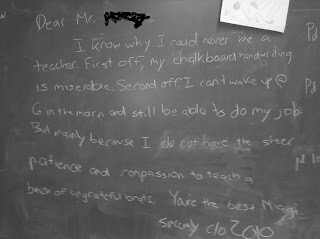 Dear Mr.
I know why I could never be a
teacher. First off, my chalkboard handwriting
is miserable. Second off, I can't wake up @
6 in the morn and still be able to do my job.
But mainly because I do not have the sheer
patience and compassion to teach a
bunch of ungrateful brats. You're the best
sincerely c/o 2010
Pd
Pd
pd 10